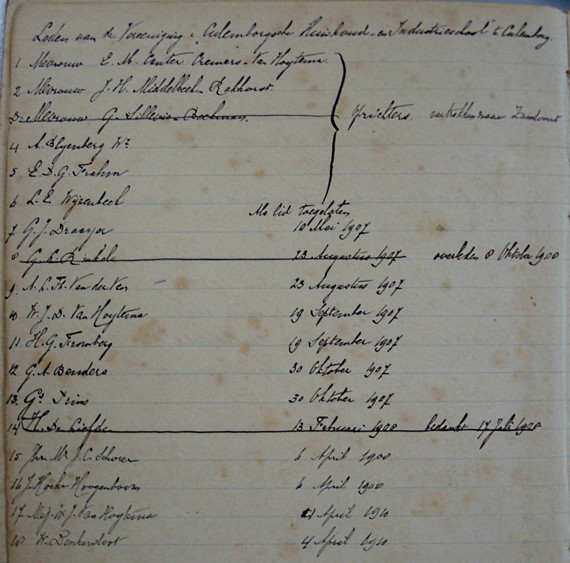 Leden van de Vereeniging: Culemborgsche Huishoud- en Industrieschool te Culemborg
1 Mevrouw E. M. Cremers-Van Hoytema
2 Mevrouw J. H. Middelbeek-Rokhorst
3 Mevrouw G. Sillevis-Boelman. Oprichters. vertrokken naar Zandvoort
4 A. Blyenberg Wz
5 E. D. G. Frahm
6 L. E. Wijzenbeek
Als lid toegelaten
7 G. J. Draayer 10 Mei 1907
8 23 Augustus 1907 overleden 8 Oktober 1908
9. A. L. Th. Van der Ven 23 Augustus 1907
10 W. J. D. Van Hoytema 19 September 1907
11 H. G. Fromberg 19 September 1907
12 G. A. Benders 30 Oktober 1907
13. 30 Oktober 1907
14 H. De Liefde 13 Februari 1908 bedankt 17 Juli 1908
15 Jhr. Mr. J. C. Schorer 6 April 1908
16 J. Hoogenboom 6 April 1908
17 Mej. W. J. Van Hoytema 4 April 1910
18 W. Denkersloot 4 April 1910